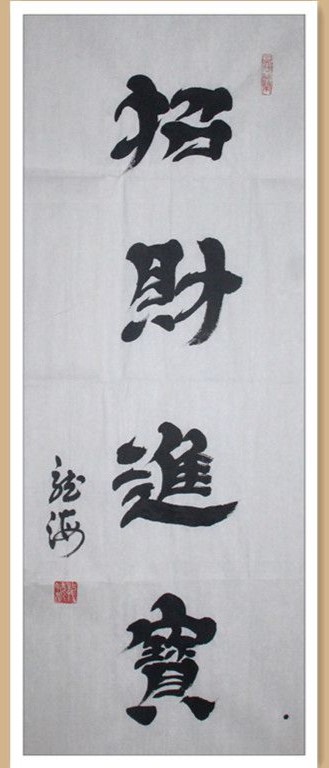 招財進寶
龍海